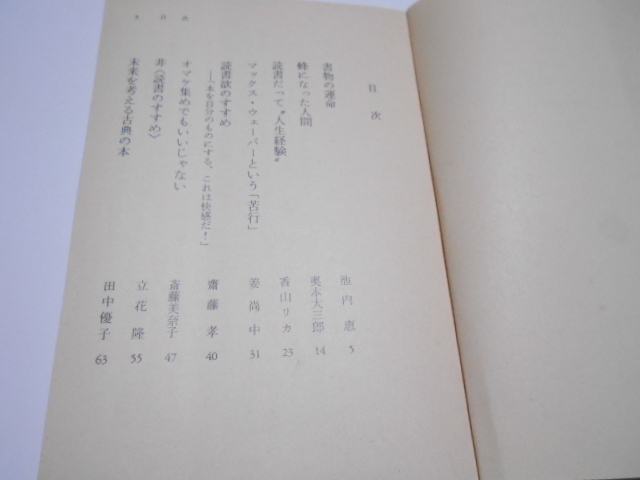 目次
書物の運命
池内恵 5
蜂になった人間
奥本大三郎 14
読書だって〝人生経験〟
香山リカ 23
マックス・ウェーバーという「苦行」
姜尚中 31
読書欲のすすめ
――「本を自分のものにする、これは快感だ！」
齋藤孝 40
オマケ集めでもいいじゃない
斎藤美奈子 47
非〈読書のすすめ〉
立花隆 55
未来を考える古典の本
田中優子 63
目次